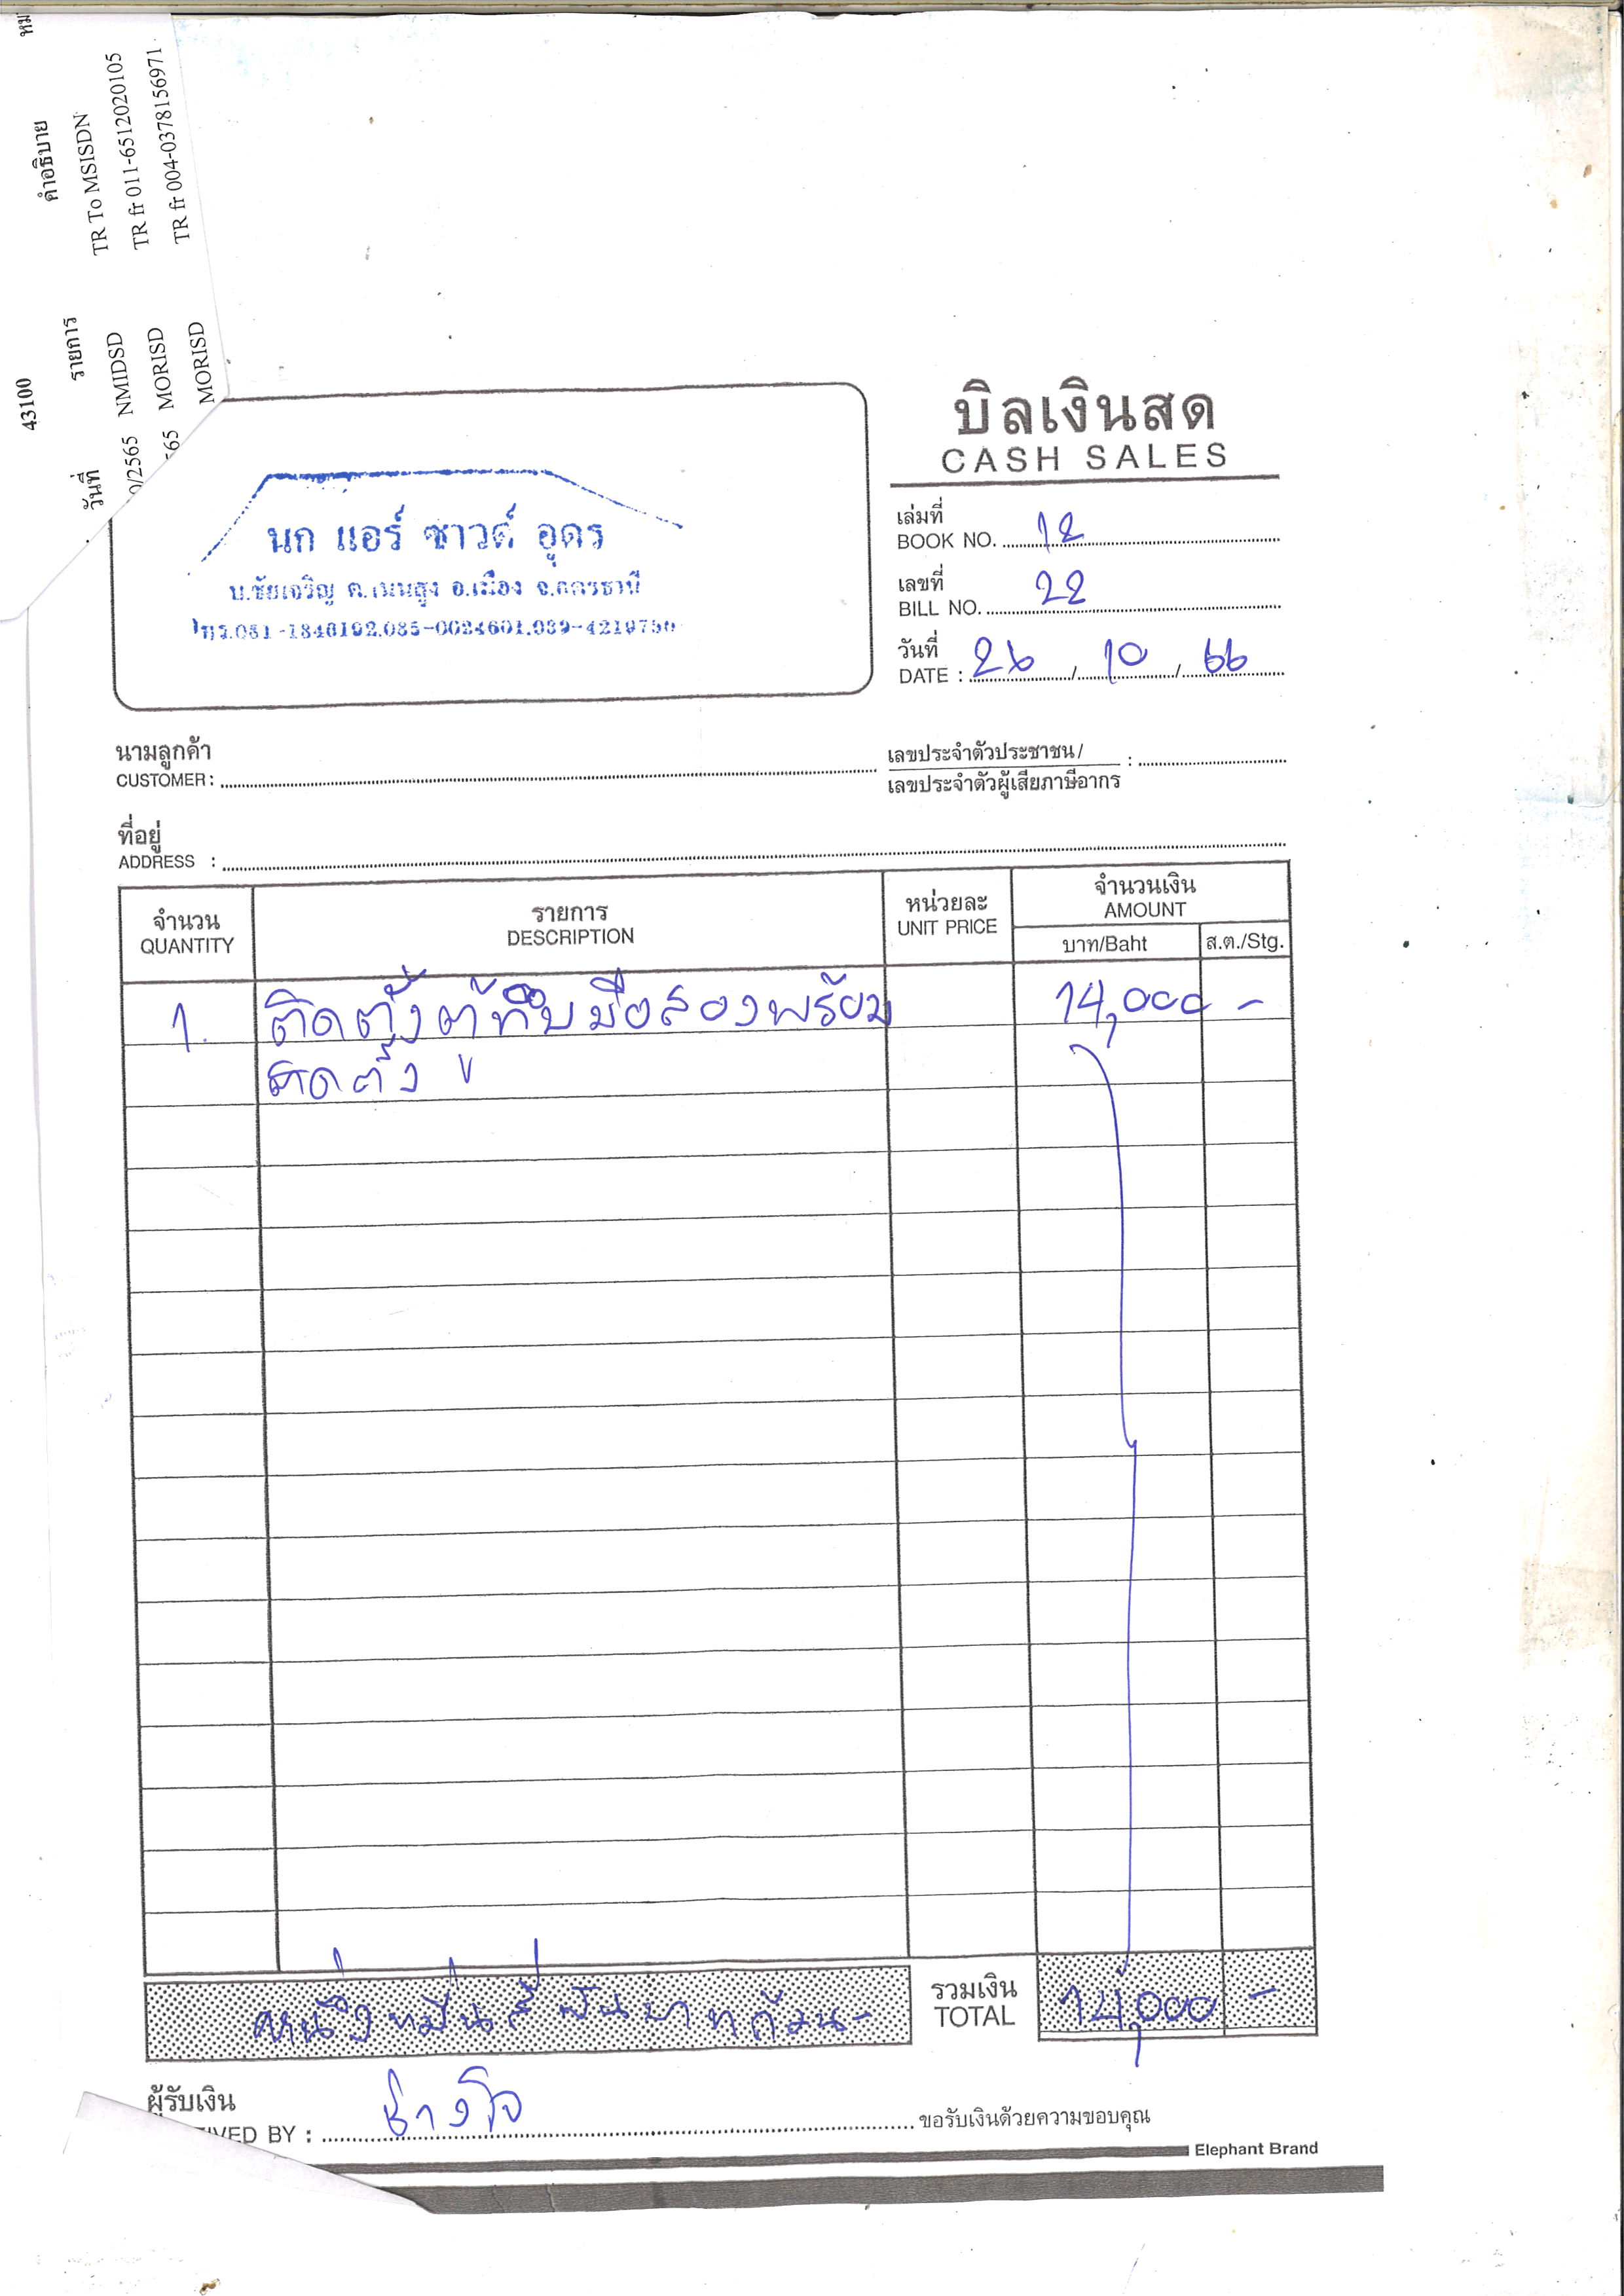 43100
วันที่ รายการ คำอธิบาย
0/2565 NMIDSD TR To MSISDN
565 MORISD TR fr 011-6512020105
MORISD TR fr 004-0378156971
บิลเงินสด
CASH SALES
นก แอร์ ซาวด์ อุดร
บ.ชัยเจริญ ต.เนนสูง อ.เมือง จ.อุดรธานี
เล่มที่
BOOK NO. 12
เลขที่
BILL NO. 22
วันที่
DATE : 26 / 10 / 66
นามลูกค้า
CUSTOMER :
เลขประจำตัวประชาชน /
เลขประจำตัวผู้เสียภาษีอากร :
ที่อยู่
ADDRESS :
จำนวน รายการ หน่วยละ จำนวนเงิน
QUANTITY DESCRIPTION UNIT PRICE AMOUNT
บาท/Baht ส.ต./Stg.
1. ติดตั้งตู้ทึบมือสองพร้อม 14,000 -
ติดตั้ง
หนึ่งหมื่นสี่พันบาทถ้วน-
รวมเงิน
TOTAL 14,000 -
ผู้รับเงิน
IVED BY : ช่างโจ ขอรับเงินด้วยความขอบคุณ
Elephant Brand